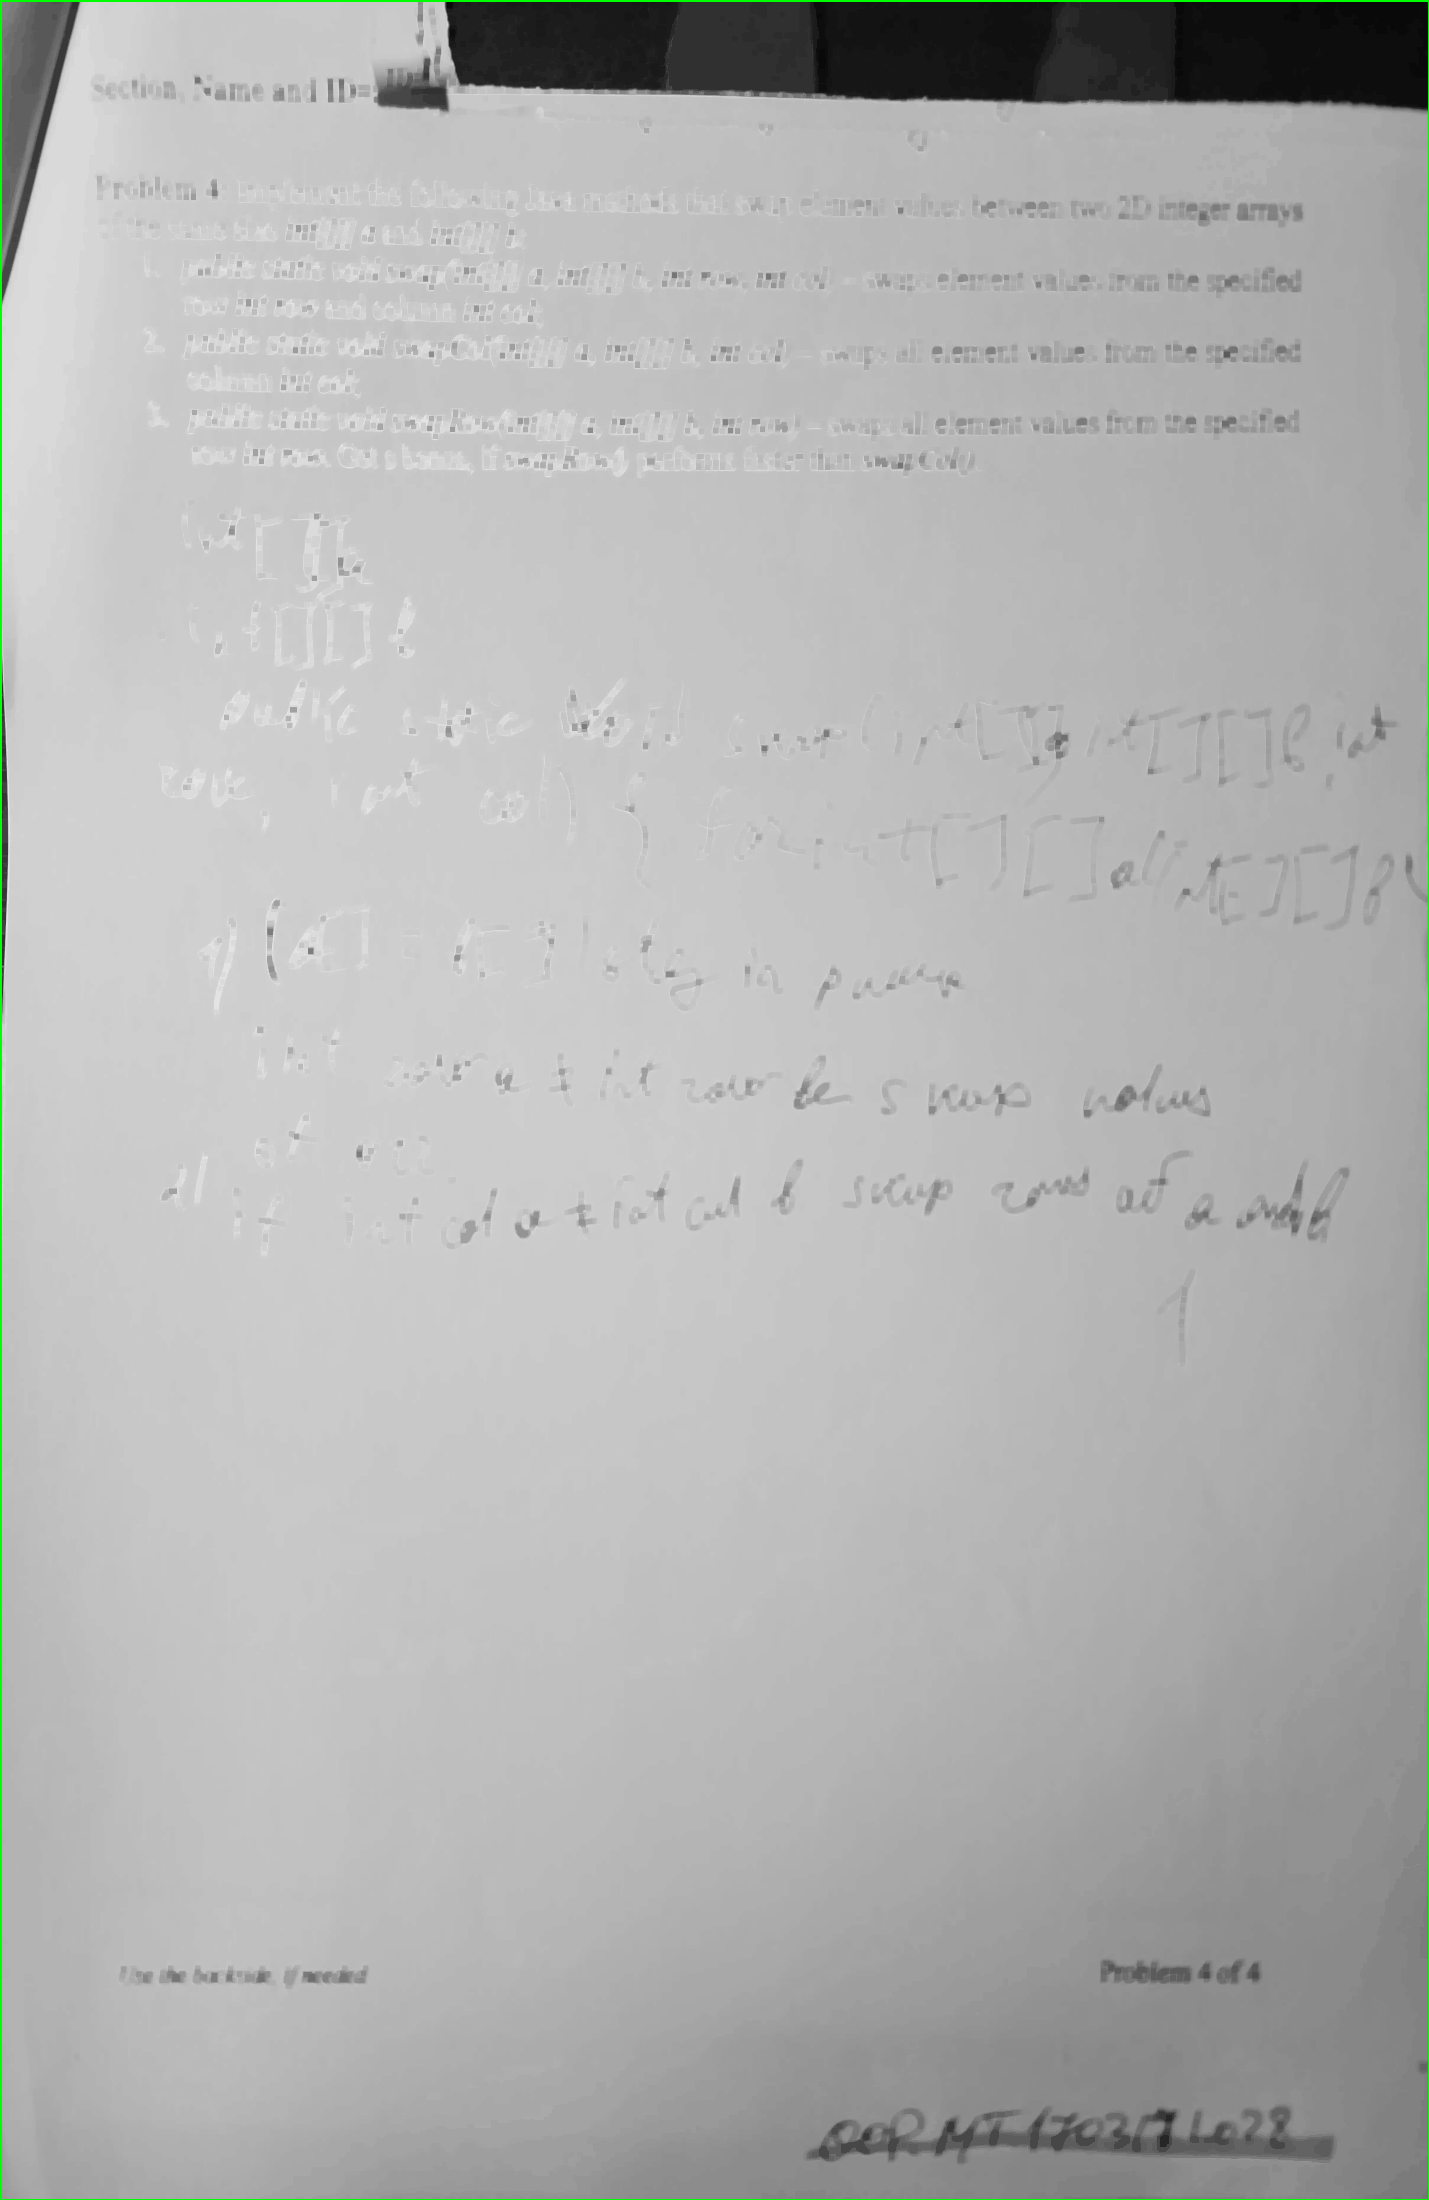 Section, Name and ID=
Problem 4: Implement the following Java methods that swap element values between two 2D integer arrays
of the same size int[][] a and int[][] b:
1. public static void swap(int[][] a, int[][] b, int row, int col) – swaps element values from the specified
row int row and column int col;
2. public static void swapCol(int[][] a, int[][] b, int col) – swaps all element values from the specified
column int col;
3. public static void swapRow(int[][] a, int[][] b, int row) – swaps all element values from the specified
row int row. Get a bonus, if swapRow() performs faster than swapCol().
int[][]
int[][] b
public static void swap(int[][]a, int[][]b, int
row, int col) { for int[][]a int[][]b
1) in
int row a ≠ int row b swap values
at
2) if int col a ≠ int col b swap rows at a and b
1
Use the backside, if needed
Problem 4 of 4
OOP MT 170317 L028